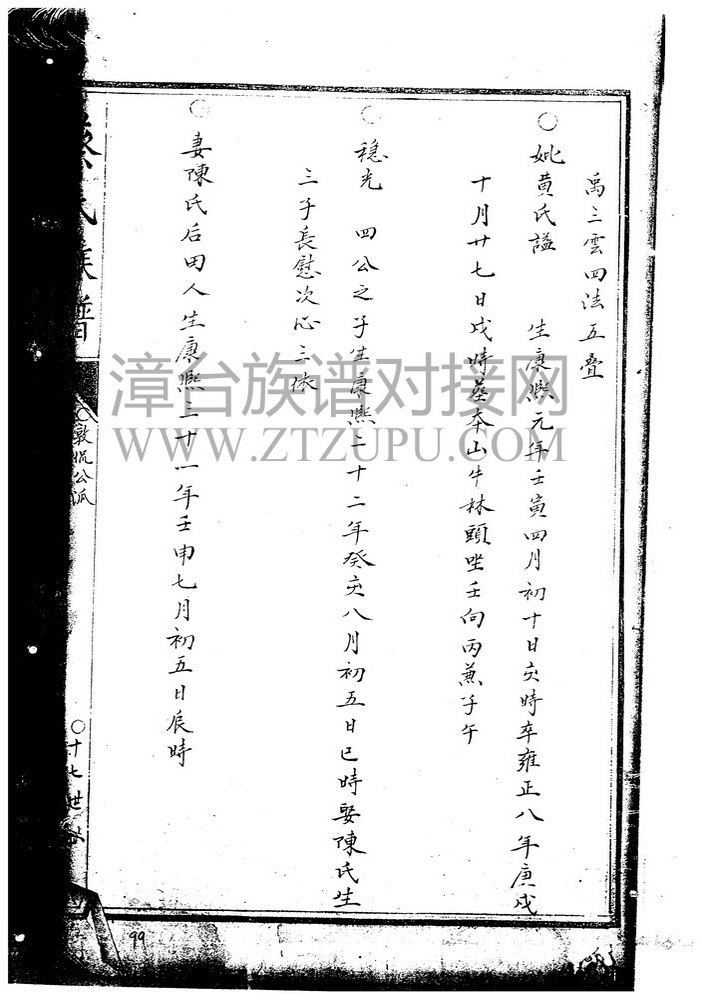 禹三雲四法五叠
○妣黄氏謚 生康熙元年壬寅四月初十日亥時卒雍正八年庚戌
十月廿七日戌時葬本山牛林頭坐壬向丙兼子午
○穏光 四公之子生康熙二十二年癸亥八月初五日巳時娶陳氏生
三子長慰次沁三依
○妻陳氏后田人生康熙三十一年壬申七月初五日辰時
蔡氏族譜
○敦悦公派
○十七世
99
漳台族谱对接网
WWW.ZTZUPU.COM